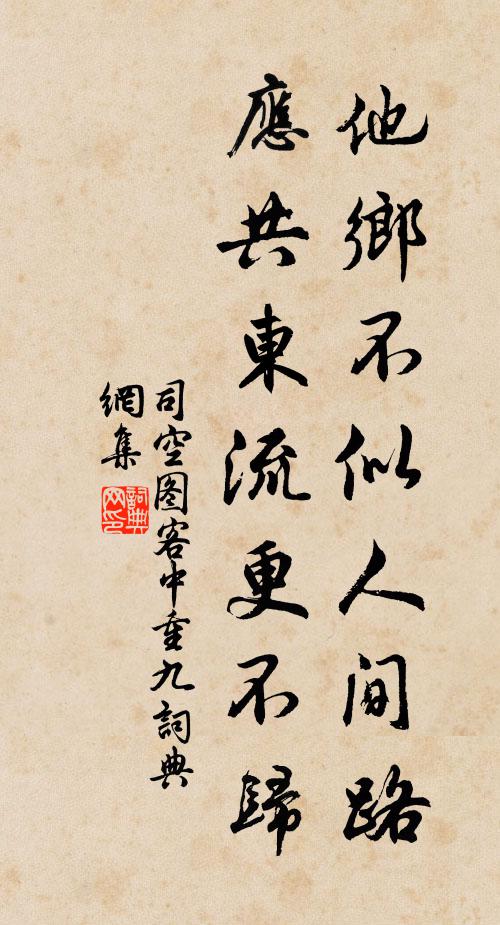 他鄉不似人間路
應共東流更不歸
司空图客中重九詞典
網集
詞典网印